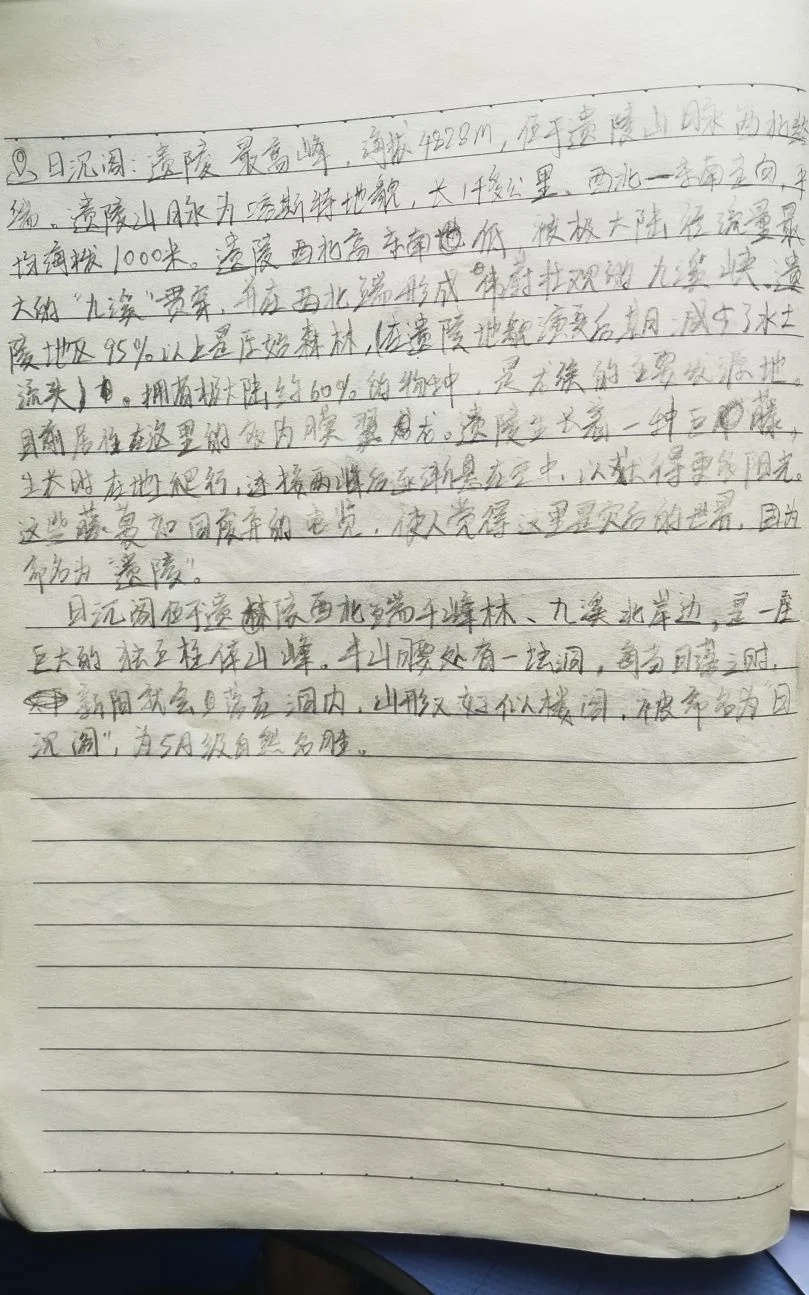 日沉阁：遗陵最高峰，海拔4828m，位于遗陵山脉西北
端。遗陵山脉为喀斯特地貌，长1千多公里，西北—东南走向，平
均海拔1000米。遗陵西北高东南低，被极大陆径流量最
大的“九溪”贯穿，并在西北端形成壮观的九溪峡。遗
陵地区95%以上是原始森林，(在遗陵地貌演变后期减少了水土
流失)。拥有极大陆约60%的物种，是龙族的主要发源地。
目前居住在这里的多为膜翼龙。遗陵生长着一种巨藤，
生长时在地上爬行，连接两峰后逐渐悬在空中，以获得更多阳光。
这些藤蔓如同废弃的电缆，使人觉得这里是灾后的世界，因为
命名为“遗陵”。
日沉阁位于遗陵西北端千峰林、九溪北岸边，是一座
巨大的独立柱体山峰。半山腰处有一坛洞，每当日落之时，
阳就会日落在洞内，山形又好似楼阁，被命名为“日
沉阁”，为5A级自然名胜。